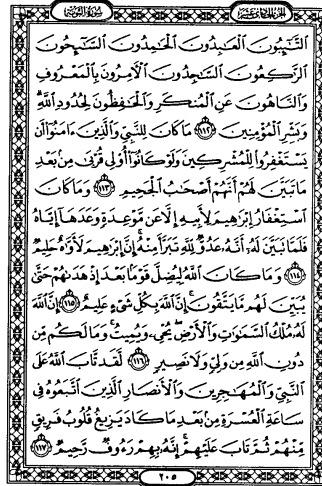 الجزء الحادي عشر سورة التوبة
التَّـٰٓئِبُونَ الْعَـٰبِدُونَ الْحَـٰمِدُونَ السَّـٰٓئِحُونَ
الرَّٰكِعُونَ السَّـٰجِدُونَ الْـَٔامِرُونَ بِالْمَعْرُوفِ
وَالنَّاهُونَ عَنِ الْمُنكَرِ وَالْحَـٰفِظُونَ لِحُدُودِ اللَّهِ ۗ
وَبَشِّرِ الْمُؤْمِنِينَ ١١٢ مَا كَانَ لِلنَّبِيِّ وَالَّذِينَ ءَامَنُوٓا أَن
يَسْتَغْفِرُوا لِلْمُشْرِكِينَ وَلَوْ كَانُوٓا أُو۟لِي قُرْبَىٰ مِنۢ بَعْدِ
مَا تَبَيَّنَ لَهُمْ أَنَّهُمْ أَصْحَـٰبُ الْجَحِيمِ ١١٣ وَمَا كَانَ
اسْتِغْفَارُ إِبْرَٰهِيمَ لِأَبِيهِ إِلَّا عَن مَّوْعِدَةٍ وَعَدَهَآ إِيَّاهُ
فَلَمَّا تَبَيَّنَ لَهُۥٓ أَنَّهُۥ عَدُوٌّ لِّلَّهِ تَبَرَّأَ مِنْهُ ۚ إِنَّ إِبْرَٰهِيمَ لَأَوَّٰهٌ حَلِيمٌ
١١٤ وَمَا كَانَ اللَّهُ لِيُضِلَّ قَوْمًۢا بَعْدَ إِذْ هَدَىٰهُمْ حَتَّىٰ
يُبَيِّنَ لَهُم مَّا يَتَّقُونَ ۚ إِنَّ اللَّهَ بِكُلِّ شَيْءٍ عَلِيمٌ ١١٥ إِنَّ اللَّهَ
لَهُۥ مُلْكُ السَّمَـٰوَٰتِ وَالْأَرْضِ ۖ يُحْيِۦ وَيُمِيتُ ۚ وَمَا لَكُم مِّن
دُونِ اللَّهِ مِن وَلِيٍّ وَلَا نَصِيرٍ ١١٦ لَّقَد تَّابَ اللَّهُ عَلَى
النَّبِيِّ وَالْمُهَـٰجِرِينَ وَالْأَنصَارِ الَّذِينَ اتَّبَعُوهُ فِي
سَاعَةِ الْعُسْرَةِ مِنۢ بَعْدِ مَا كَادَ يَزِيغُ قُلُوبُ فَرِيقٍ
مِّنْهُمْ ثُمَّ تَابَ عَلَيْهِمْ ۚ إِنَّهُۥ بِهِمْ رَءُوفٌ رَّحِيمٌ ١١٧
٢٠٥